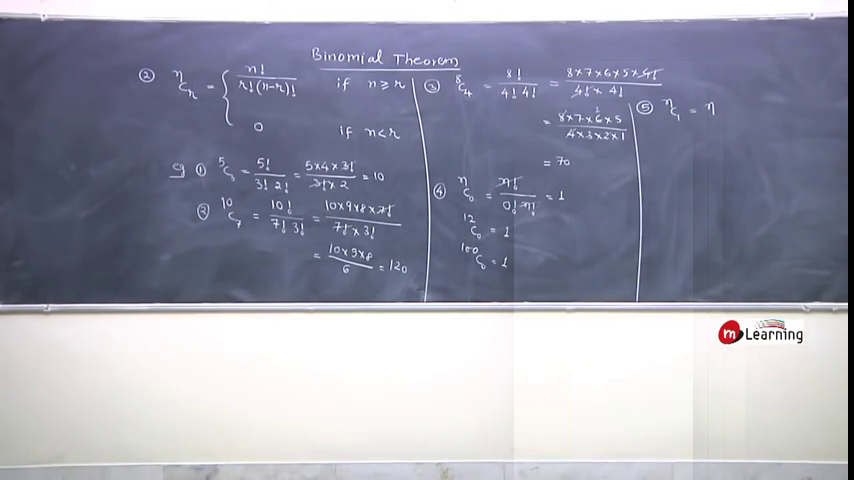 Binomial Theorem
② ⁿCᵣ = { n! / r!(n-r)! if n ≥ r
0 if n < r
eg ① ⁵C₃ = 5! / 3! 2! = 5×4×3! / 3!×2 = 10
② ¹⁰C₇ = 10! / 7! 3! = 10×9×8×7! / 7!×3!
= 10×9×8 / 6 = 120
③ ⁸C₄ = 8! / 4! 4! = 8×7×6×5×4! / 4!×4!
= 8×7×6×5 / 4×3×2×1
= 70
④ ⁿC₀ = n! / 0! n! = 1
¹²C₀ = 1
¹⁰⁰C₀ = 1
⑤ ⁿC₁ = n
m Learning